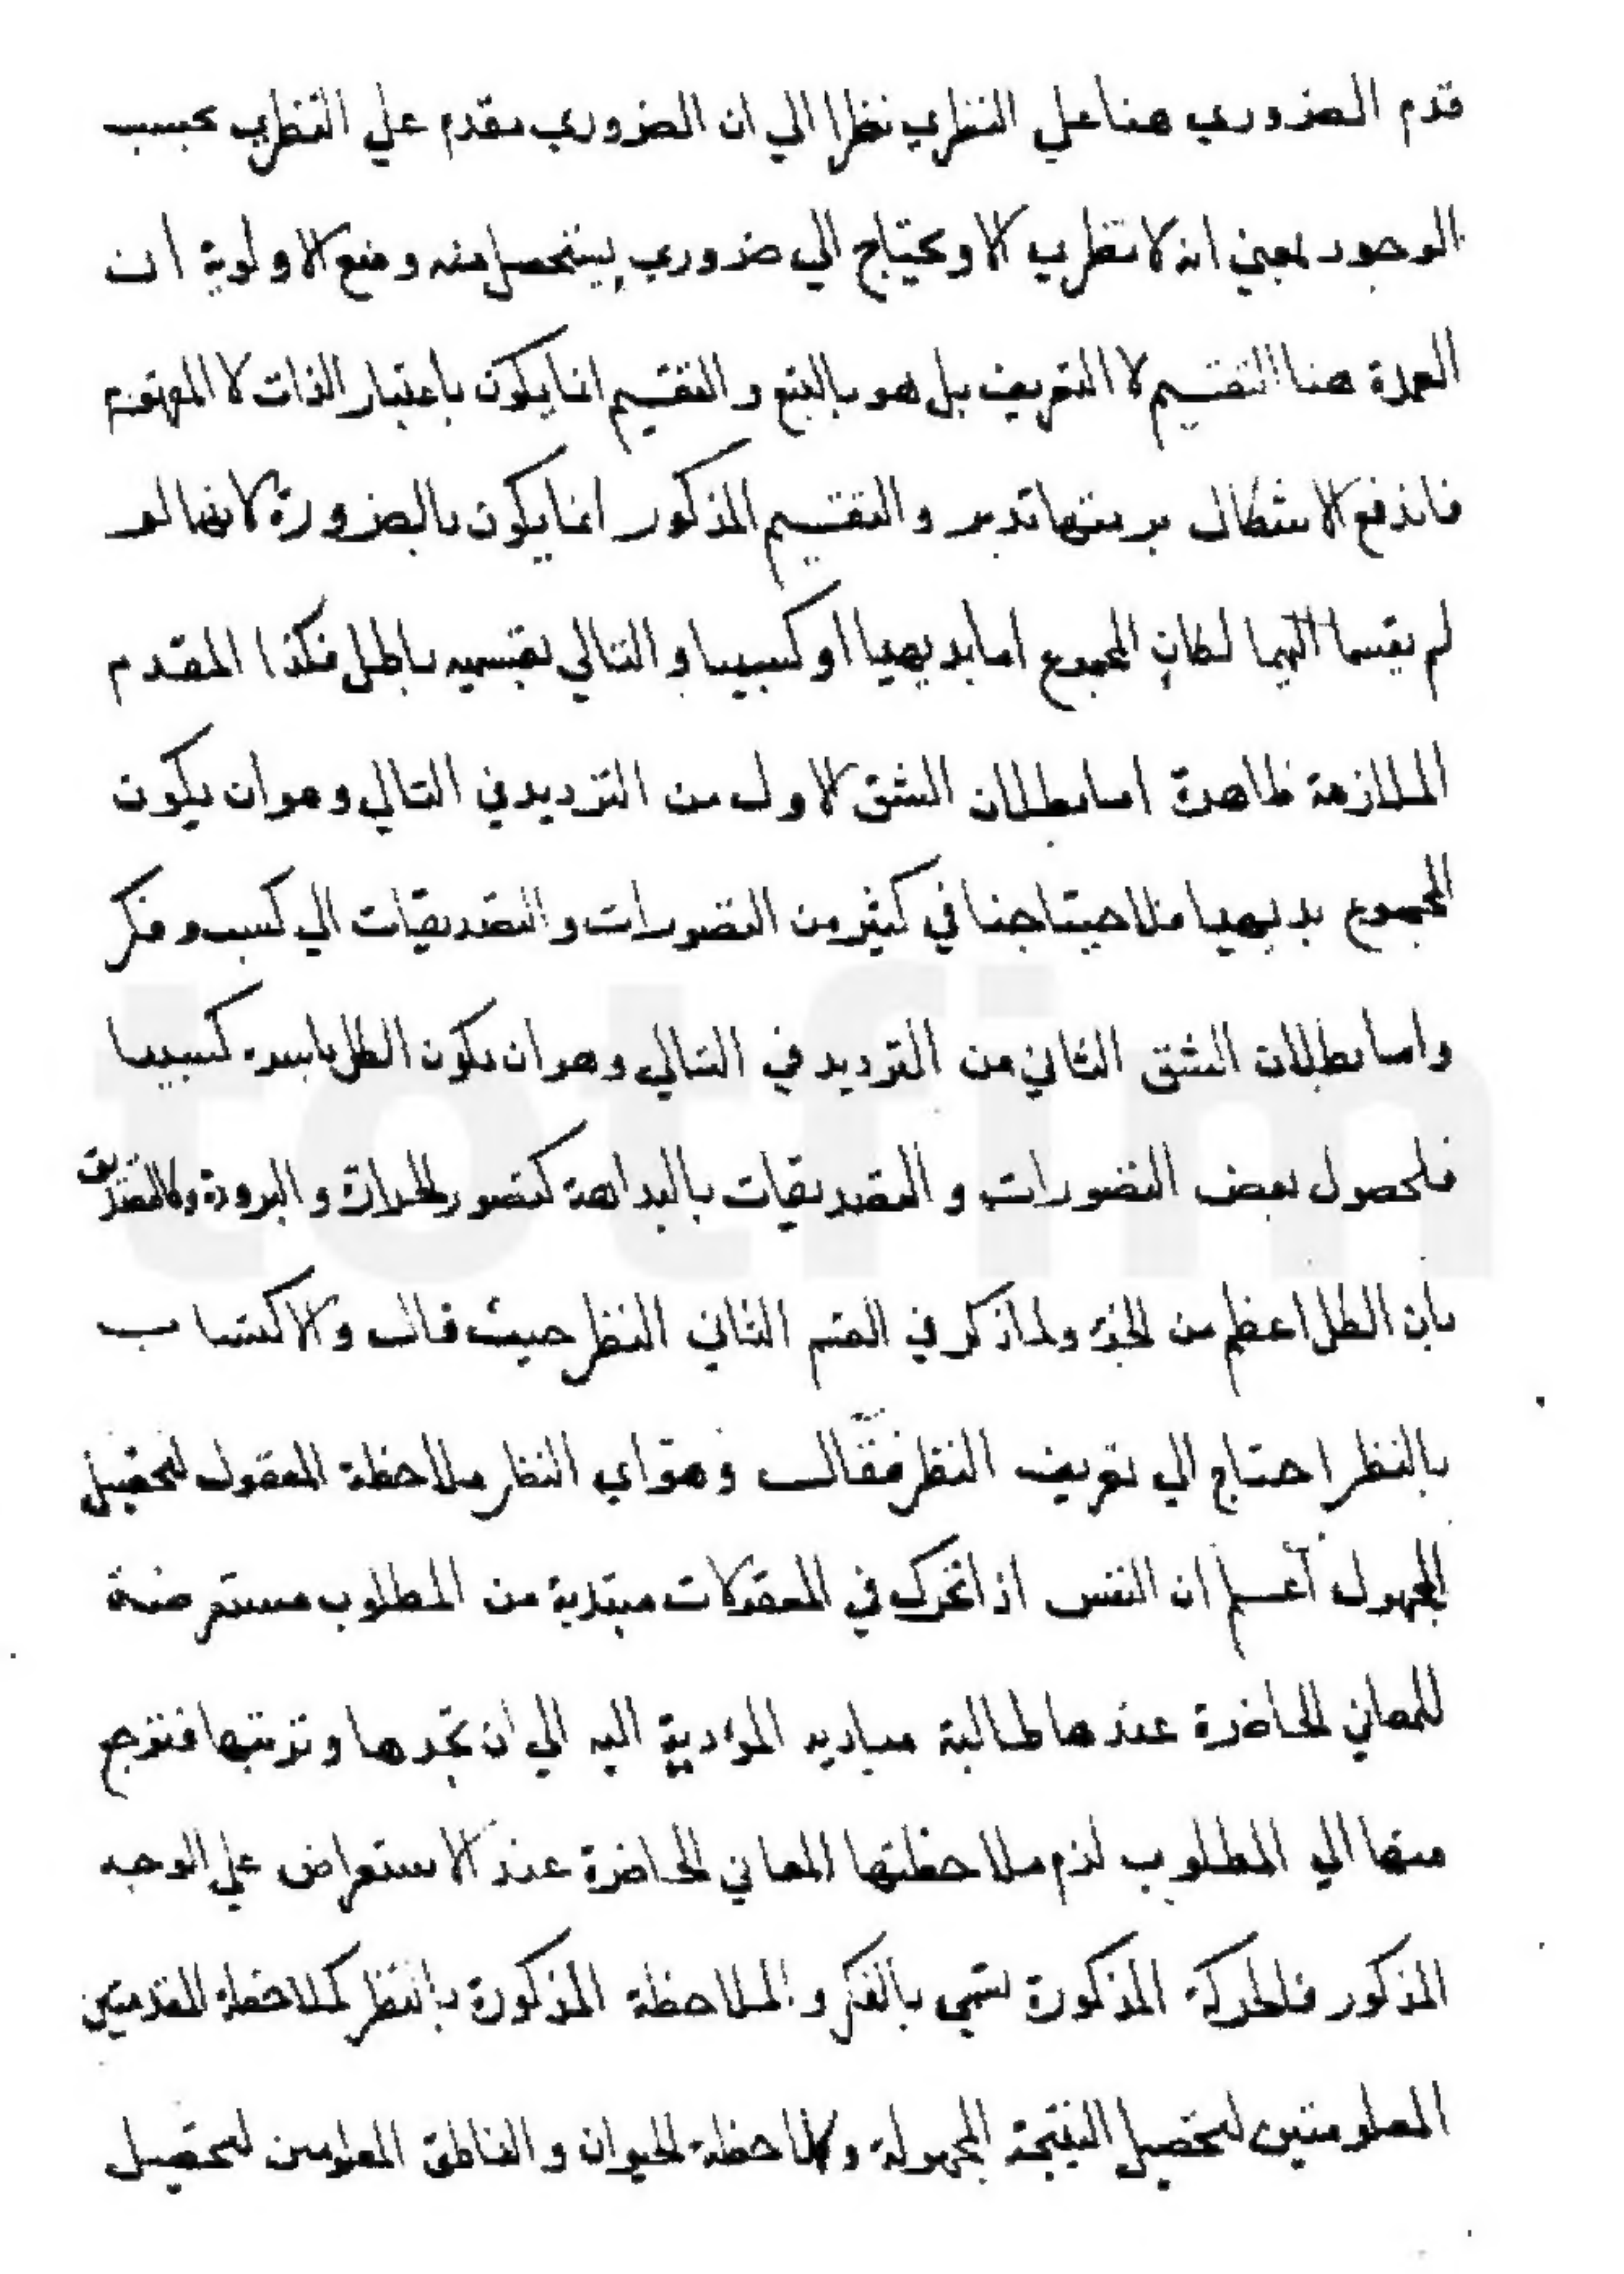 قدم الضروري هنا علي النظري نظرا الي ان الضروري مقدم علي النظري بحسب
الوجود بمعني انه لا نظري الا ويحتاج الي ضروري يتحصل منه ومنع الاولوية ان
العمدة هنا التقسيم لا التعريف بل هو بالتبع والتقسيم انما يكون باعتبار الذات لا المفهوم
فاندفع الاشكال برمتها تدبر والتقسيم المذكور انما يكون بالضرورة لانهما لو
لم يقسما اليهما لكان المجموع اما بديهيا او كسبيا والتالي بقسميه باطل فكذا المقدم
الملازمة ظاهرة اما بطلان الشق الاول من الترديد في التالي وهو ان يكون
المجموع بديهيا فلاحتياجنا في كثير من التصورات والتصديقات الي كسب وفكر
واما بطلان الشق الثاني من الترديد في التالي وهو ان يكون الكل باسره كسبيا
فلحصول بعض التصورات والتصديقات بالبداهة كتصور الحرارة والبرودة وكالتصديق
بان الكل اعظم من الجزء ولما ذكر في القسم الثاني النظر حيث قال والاكتساب
بالنظر احتاج الي تعريف النظر فقال وهو اي النظر ملاحظة المعقول لتحصيل
المجهول اعلم ان النفس اذا تحرك في المعقولات مبتدية من المطلوب مستعرضة
للمعاني الحاضرة عندها طالبة مباديه المؤدية اليه الي ان تجدها وترتبها فترجع
منها الي المطلوب لزم ملاحظتها المعاني الحاضرة عند الاستعراض علي الوجه
المذكور فالحركة المذكورة تسمي بالفكر والملاحظة المذكورة بالنظر كملاحظة المقدمتين
المعلومتين لتحصيل النتيجة المجهولة وكملاحظة الحيوان والناطق المعلومين لتحصيل
totfim